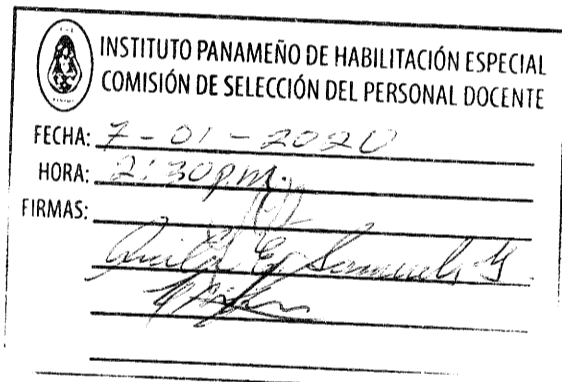 INSTITUTO PANAMEÑO DE HABILITACIÓN ESPECIAL
COMISIÓN DE SELECCIÓN DEL PERSONAL DOCENTE
FECHA: 7-01-2020
HORA: 2:30p.m.
FIRMAS: